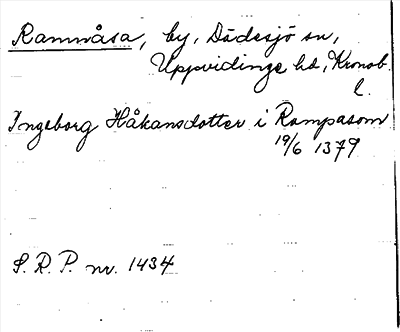 Rammåsa, by, Dädesjö sn,
Uppvidinge hd, Kronob.
l.
Ingeborg Håkansdotter i Rampasom
19/6 1379
S. R. P. nr. 1434